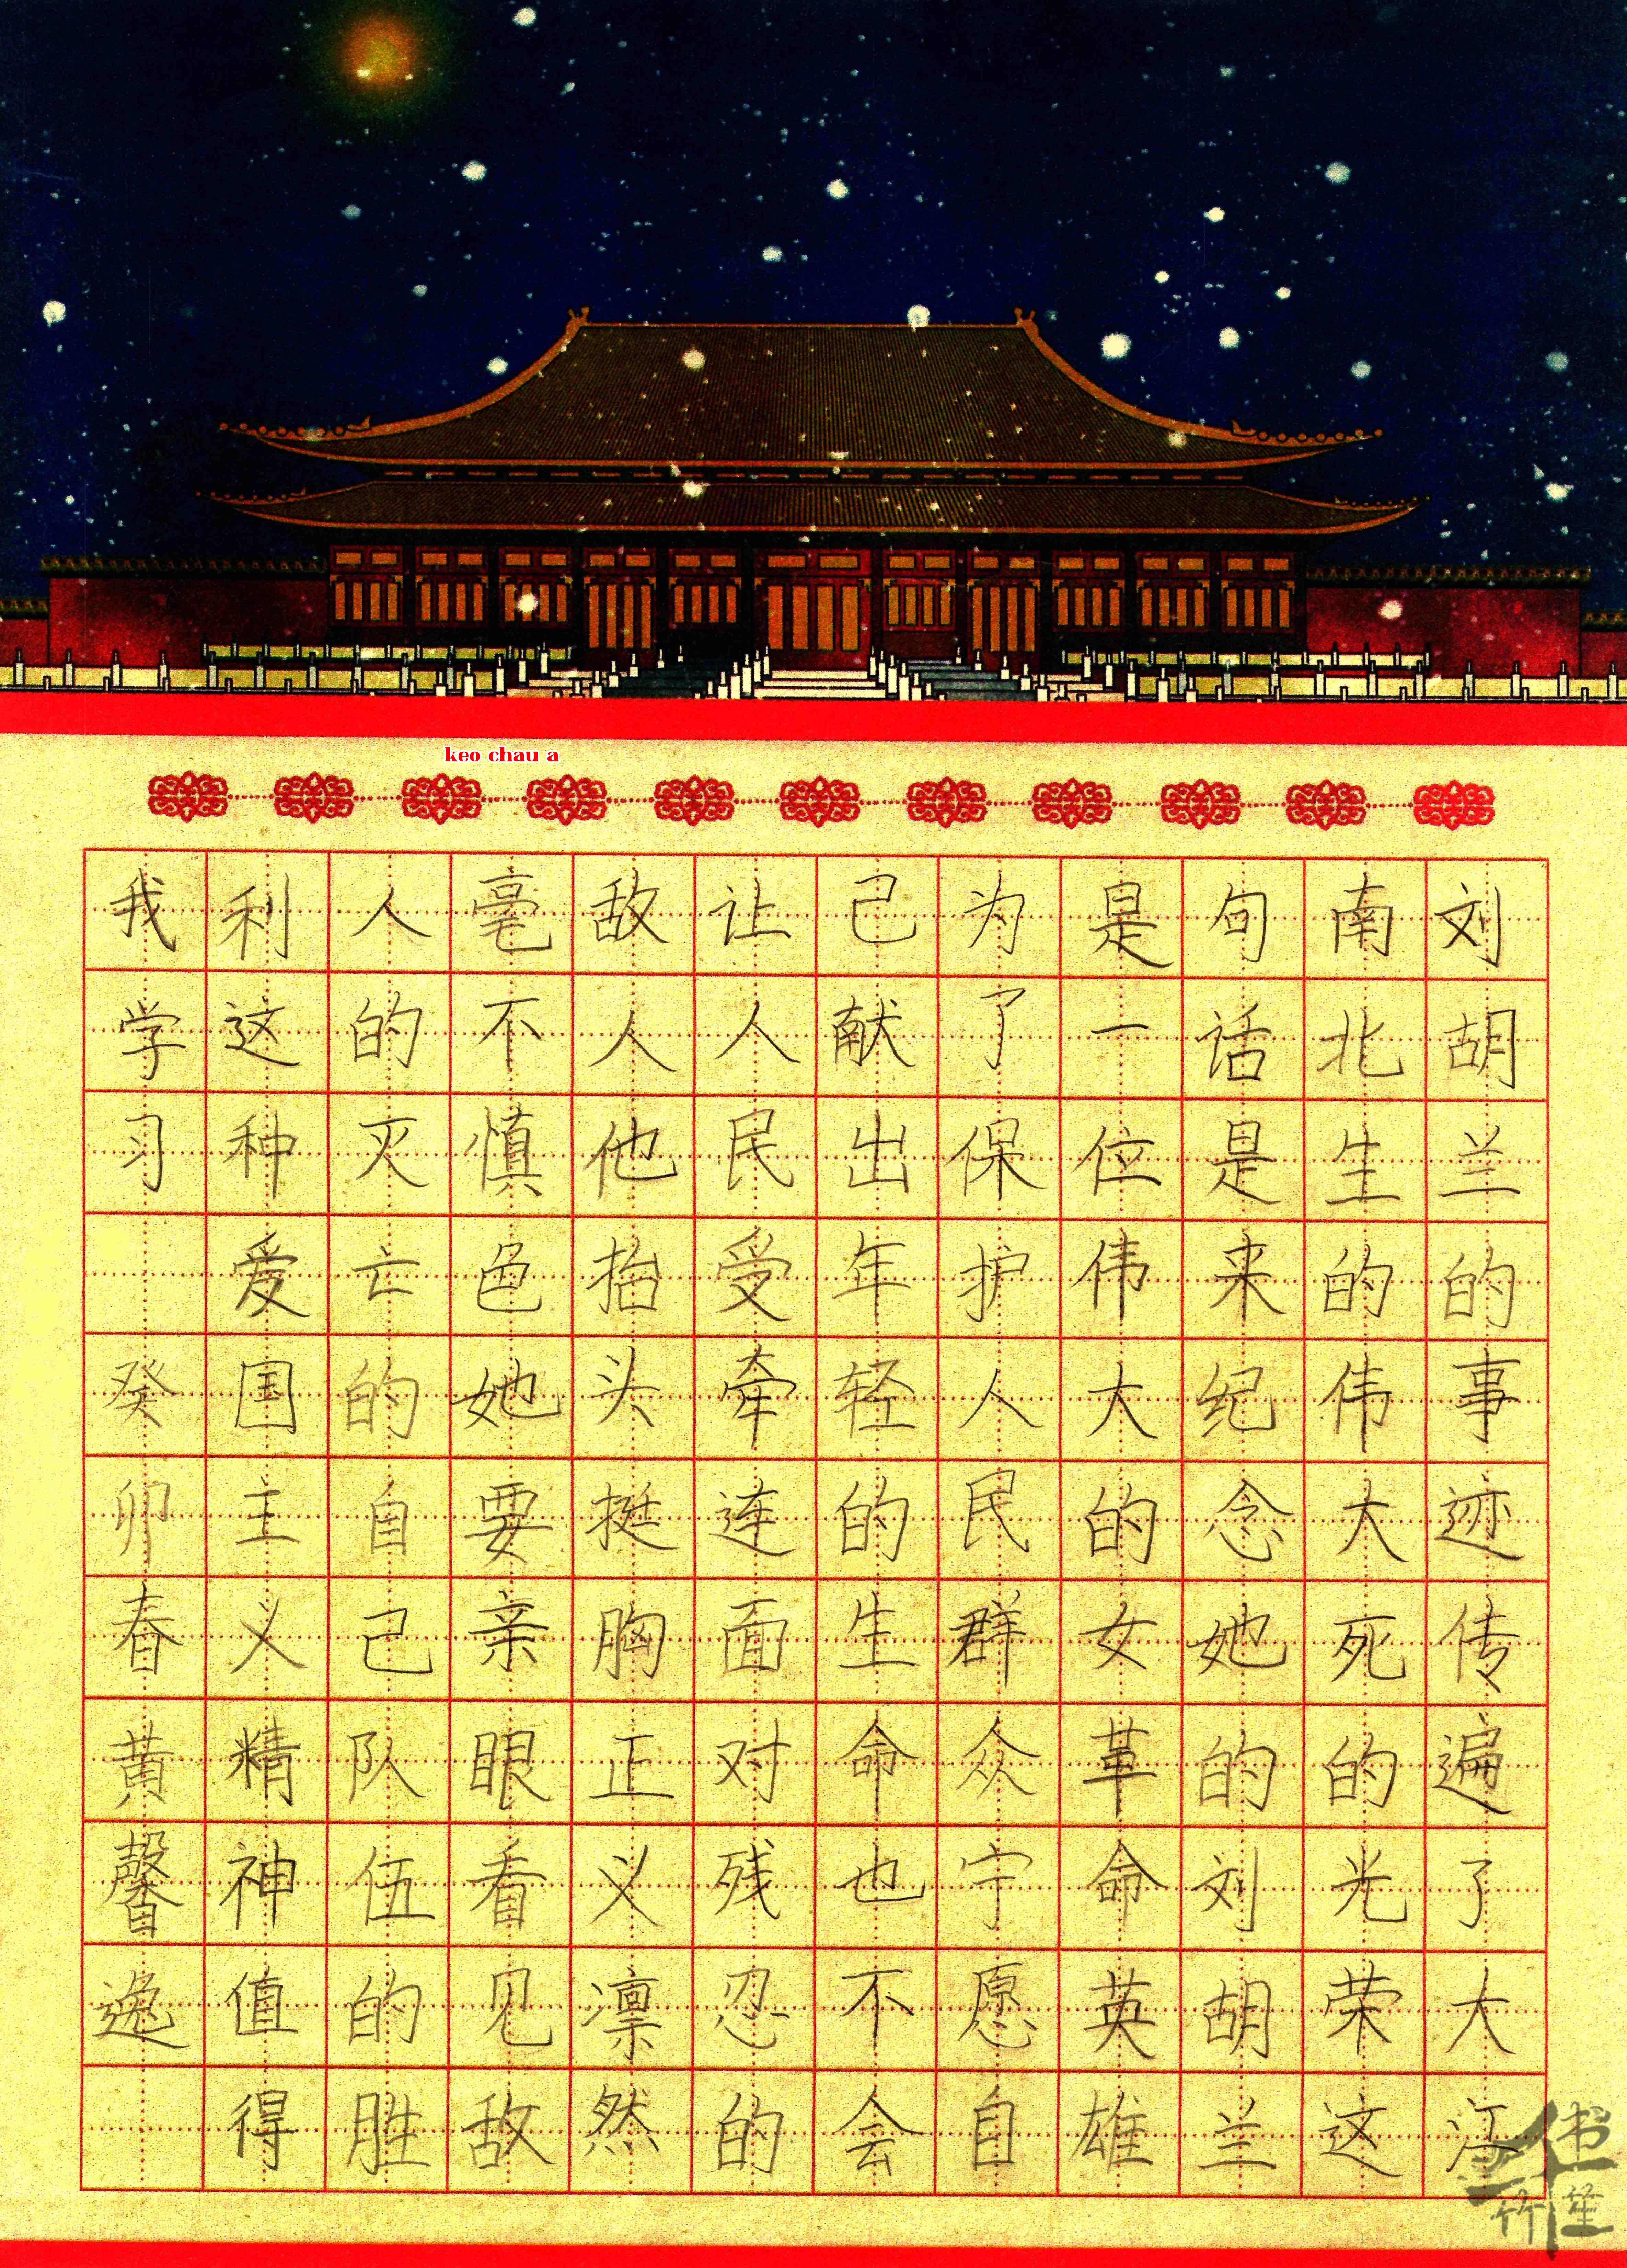 keo chau a
刘胡兰的事迹传遍了大江
南北生的伟大死的光荣这
句话是来纪念她的刘胡兰
是一位伟大的女革命英雄
为了保护人民群众宁愿自
己献出年轻的生命也不会
让人民受牵连面对残忍的
敌人他抬头挺胸正义凛然
毫不慎色她要亲眼看见敌
人的灭亡的自己队伍的胜
利这种爱国主义精神值得
我学习
癸卯春黄馨逸